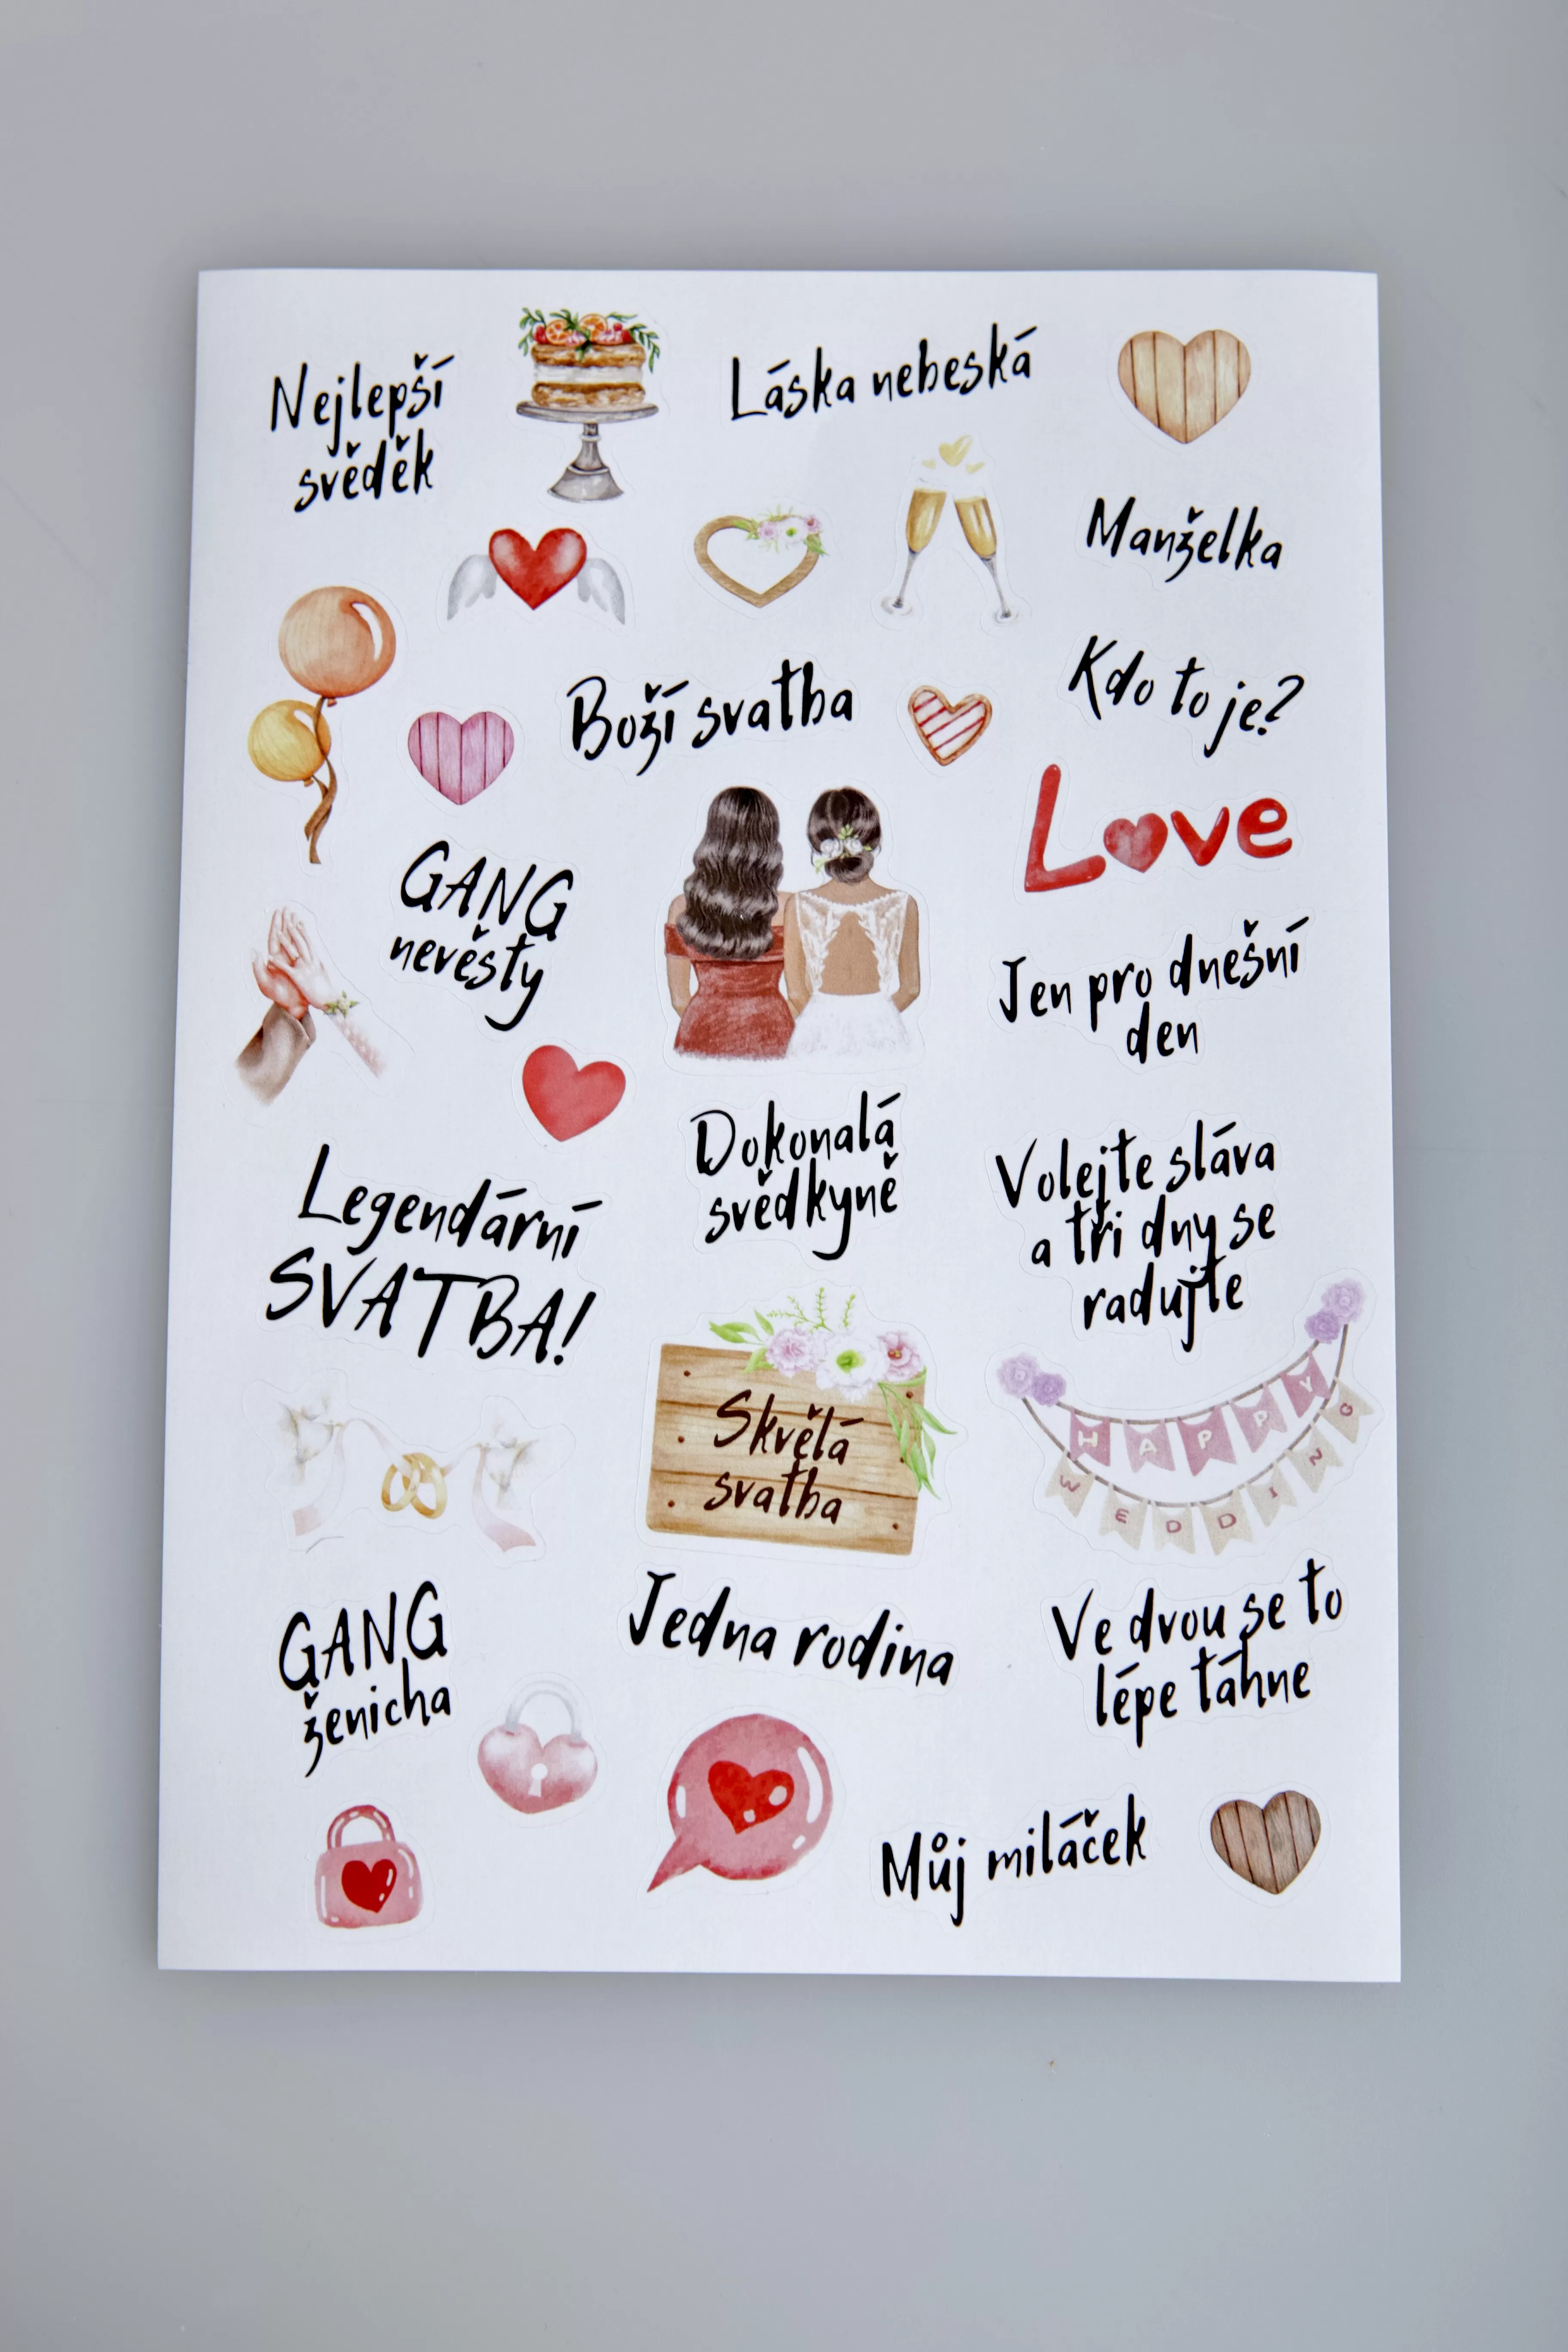 Nejlepší
svěděk
Láska nebeská
Manželka
Boží svatba
Kdo to je?
Love
GANG
nevěsty
Jen pro dnešní
den
Dokonalá
svědkyně
Volejte sláva
a tři dny se
radujte
Legendární
SVATBA!
Skvělá
svatba
HAPPY
WEDDING
GANG
ženicha
Jedna rodina
Ve dvou se to
lépe táhne
Můj miláček